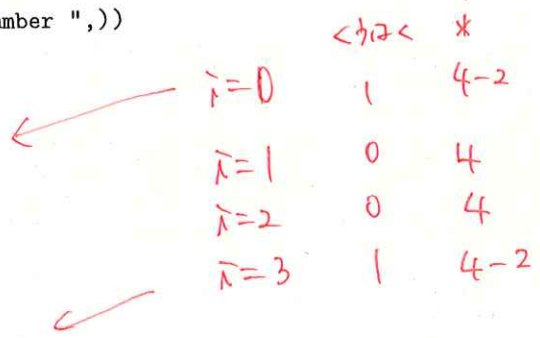 mber ",))
くうはく *
i=0 1 4-2
i=1 0 4
i=2 0 4
i=3 1 4-2